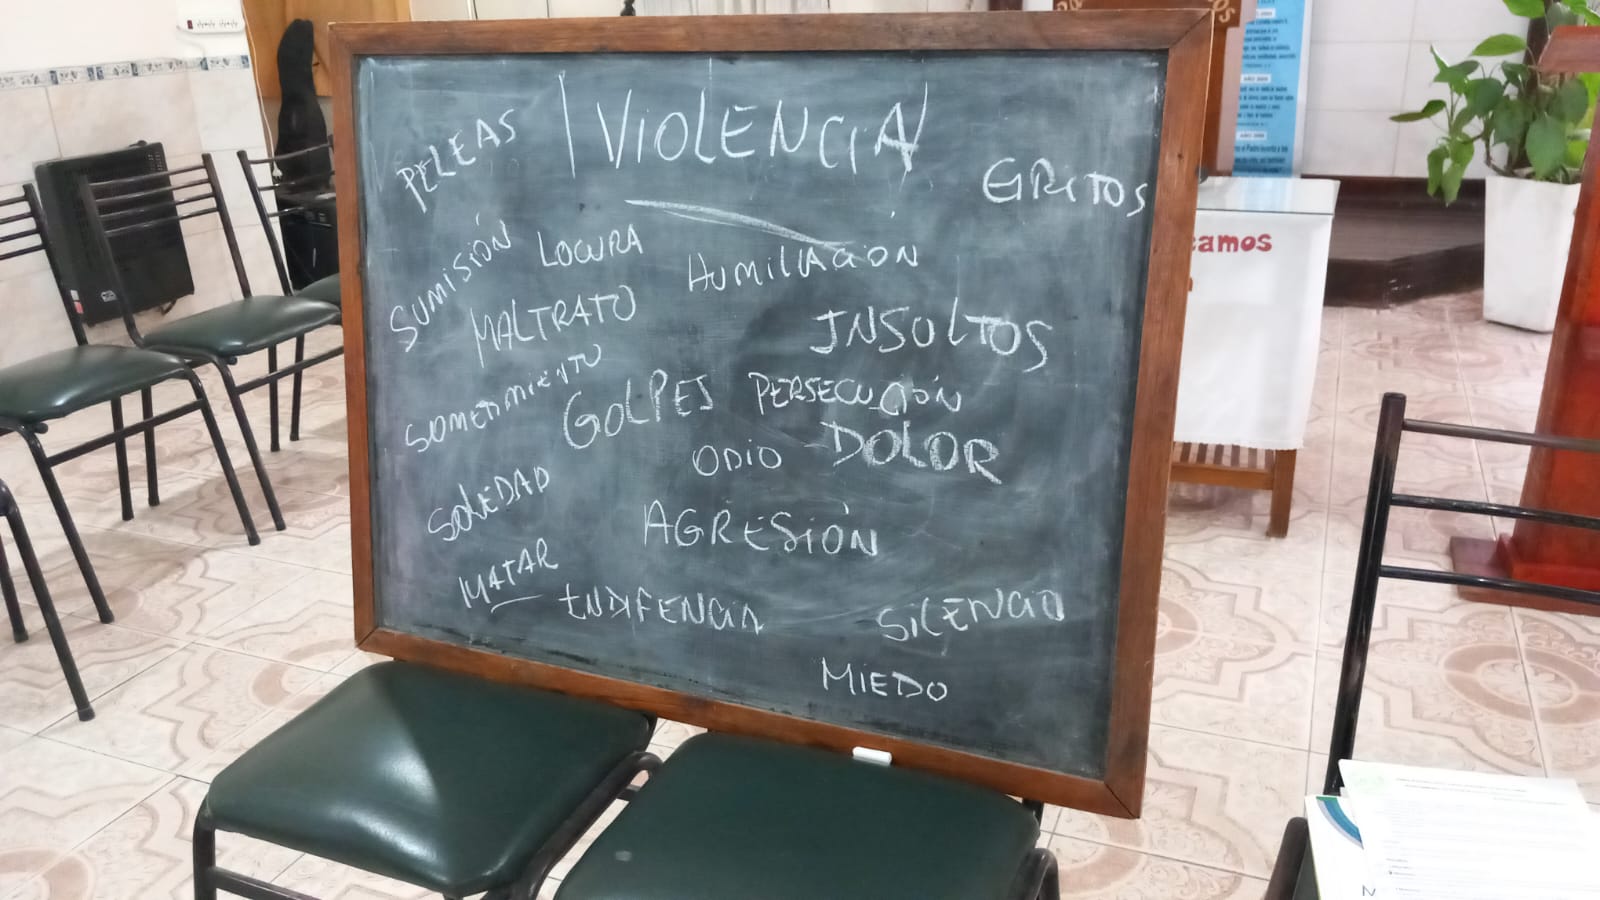 VIOLENCIA
PELEAS
GRITOS
SUMISIÓN
LOCURA
HUMILLACIÓN
MALTRATO
INSULTOS
SOMETIMIENTO
GOLPES
PERSECUCIÓN
ODIO
DOLOR
SOLEDAD
AGRESIÓN
MATAR
INDIFENCIA
SILENCIO
MIEDO
camos
AÑO 2005